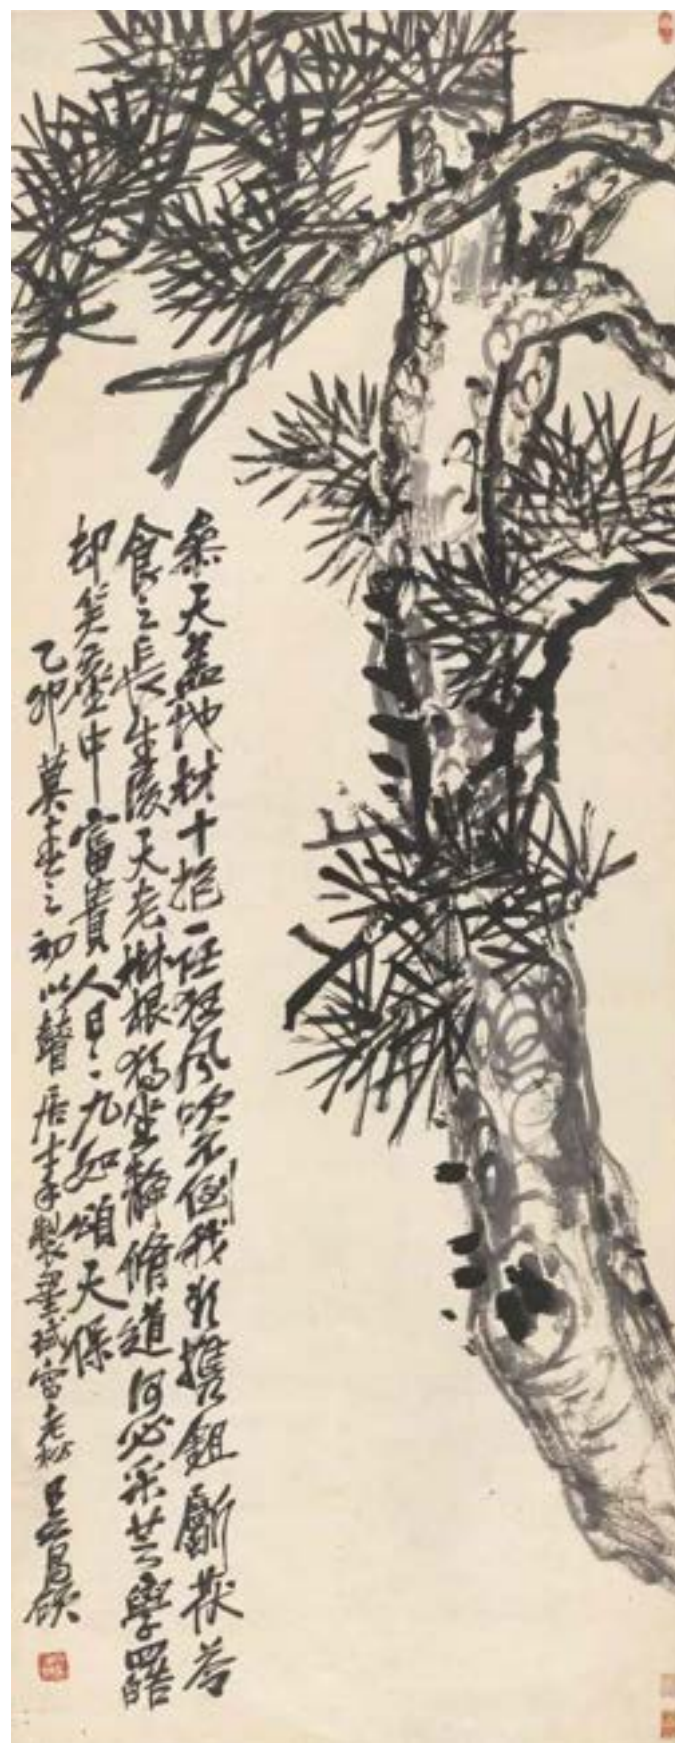 參天蓋地材十抱一任狂風吹不倒我欲攜鉏斸茯苓
食之長生後天老樹根獨坐靜脩道何必采芝學四皓
却笑臺中富貴人日日九如頌天保
乙卯莫春之初以聾居士手製墨試寫老松 吳昌碩